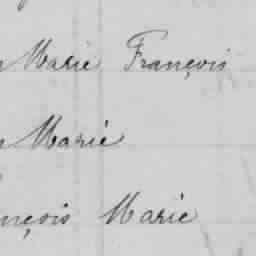 Marie François
Marie
nçois Marie